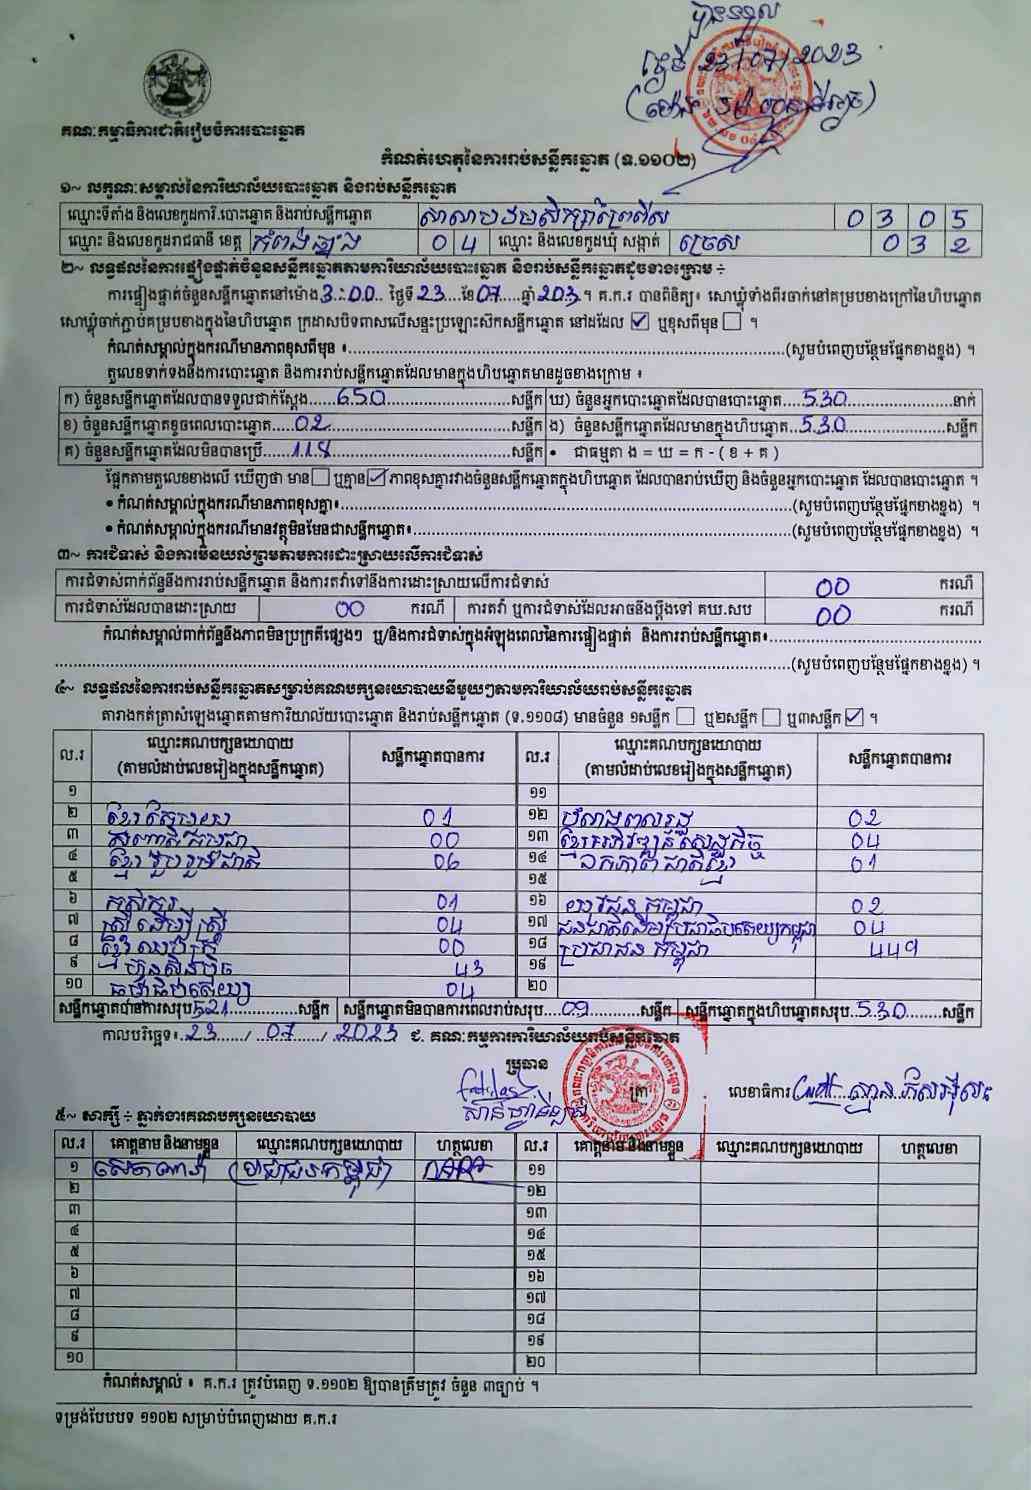 បានទទួល
ថ្ងៃទី 23/07/2023
គណៈកម្មាធិការជាតិរៀបចំការបោះឆ្នោត
កំណត់ហេតុនៃការរាប់សន្លឹកឆ្នោត (ទ.១១០២)
១~ លក្ខណៈសម្គាល់នៃការិយាល័យបោះឆ្នោត និងរាប់សន្លឹកឆ្នោត
ឈ្មោះទីតាំង និងលេខកូដការិ.បោះឆ្នោត និងរាប់សន្លឹកឆ្នោត សាលាបឋមសិក្សា 0 3 0 5
ឈ្មោះ និងលេខកូដរាជធានី ខេត្ត កំពង់ឆ្នាំង 0 4 ឈ្មោះ និងលេខកូដឃុំ សង្កាត់ ច្រេស 0 3 2
២~ លទ្ធផលនៃការផ្ទៀងផ្ទាត់ចំនួនសន្លឹកឆ្នោតតាមការិយាល័យបោះឆ្នោត និងរាប់សន្លឹកឆ្នោតដូចខាងក្រោម ÷
ការផ្ទៀងផ្ទាត់ចំនួនសន្លឹកឆ្នោតនៅម៉ោង 3:00 ថ្ងៃទី 23 ខែ 07 ឆ្នាំ 2023។ គ.ក.រ បានពិនិត្យ៖ សោឃ្លុំទាំងពីរចាក់នៅគម្របខាងក្រៅនៃហិបឆ្នោត
សោឃ្លុំចាក់ភ្ជាប់គម្របខាងក្នុងនៃហិបឆ្នោត ក្រដាសបិទពាសលើសន្ទះប្រឡោះស៊កសន្លឹកឆ្នោត នៅដដែល ☑ ឬខុសពីមុន ☐ ។
កំណត់សម្គាល់ក្នុងករណីមានភាពខុសពីមុន ៖ (សូមបំពេញបន្ថែមផ្នែកខាងខ្នង) ។
តួលេខទាក់ទងនឹងការបោះឆ្នោត និងការរាប់សន្លឹកឆ្នោតដែលមានក្នុងហិបឆ្នោតមានដូចខាងក្រោម ៖
ក) ចំនួនសន្លឹកឆ្នោតដែលបានទទួលជាក់ស្តែង 650 សន្លឹក ឃ) ចំនួនអ្នកបោះឆ្នោតដែលបានបោះឆ្នោត 530 នាក់
ខ) ចំនួនសន្លឹកឆ្នោតខូចពេលបោះឆ្នោត 02 សន្លឹក ង) ចំនួនសន្លឹកឆ្នោតដែលមានក្នុងហិបឆ្នោត 530 សន្លឹក
គ) ចំនួនសន្លឹកឆ្នោតដែលមិនបានប្រើ 118 សន្លឹក • ជាធម្មតា ង = ឃ = ក - ( ខ + គ )
ផ្អែកតាមតួលេខខាងលើ ឃើញថា មាន ☐ ឬគ្មាន ☑ ភាពខុសគ្នារវាងចំនួនសន្លឹកឆ្នោតក្នុងហិបឆ្នោត ដែលបានរាប់ឃើញ និងចំនួនអ្នកបោះឆ្នោត ដែលបានបោះឆ្នោត ។
• កំណត់សម្គាល់ក្នុងករណីមានភាពខុសគ្នា៖ (សូមបំពេញបន្ថែមផ្នែកខាងខ្នង) ។
• កំណត់សម្គាល់ក្នុងករណីមានវត្ថុមិនមែនជាសន្លឹកឆ្នោត៖ (សូមបំពេញបន្ថែមផ្នែកខាងខ្នង) ។
៣~ ការជំទាស់ និងការមិនយល់ព្រមតាមការដោះស្រាយលើការជំទាស់
ការជំទាស់ពាក់ព័ន្ធនឹងការរាប់សន្លឹកឆ្នោត និងការតវ៉ាទៅនឹងការដោះស្រាយលើការជំទាស់ 00 ករណី
ការជំទាស់ដែលបានដោះស្រាយ 00 ករណី ការតវ៉ា ឬការជំទាស់ដែលអាចនឹងប្តឹងទៅ គឃ.សប 00 ករណី
កំណត់សម្គាល់ពាក់ព័ន្ធនឹងភាពមិនប្រក្រតីផ្សេងៗ ឬ/និងការជំទាស់ក្នុងអំឡុងពេលនៃការផ្ទៀងផ្ទាត់ និងការរាប់សន្លឹកឆ្នោត៖
(សូមបំពេញបន្ថែមផ្នែកខាងខ្នង) ។
៤~ លទ្ធផលនៃការរាប់សន្លឹកឆ្នោតសម្រាប់គណបក្សនយោបាយនីមួយៗតាមការិយាល័យរាប់សន្លឹកឆ្នោត
តារាងកត់ត្រាសំឡេងឆ្នោតតាមការិយាល័យបោះឆ្នោត និងរាប់សន្លឹកឆ្នោត (ទ.១១០៨) មានចំនួន ១សន្លឹក ☐ ឬ២សន្លឹក ☐ ឬ៣សន្លឹក ☑ ។
ល.រ ឈ្មោះគណបក្សនយោបាយ (តាមលំដាប់លេខរៀងក្នុងសន្លឹកឆ្នោត) សន្លឹកឆ្នោតបានការ ល.រ ឈ្មោះគណបក្សនយោបាយ (តាមលំដាប់លេខរៀងក្នុងសន្លឹកឆ្នោត) សន្លឹកឆ្នោតបានការ
១ ១១
២ ខ្មែរតែមួយ 01 ១២ បំណាងពលរដ្ឋ 02
៣ សញ្ជាតិកម្ពុជា 00 ១៣ ខ្មែរអភិវឌ្ឍន៍សេដ្ឋកិច្ច 04
៤ ខ្មែររួបរួមជាតិ 06 ១៤ ឯកភាពជាតិខ្មែរ 01
៥ ១៥
៦ កសិករ 01 ១៦ យុវជនកម្ពុជា 02
៧ ស្រីដើម្បីស្រី 04 ១៧ ជនជាតិដើមប្រជាធិបតេយ្យកម្ពុជា 04
៨ ខ្មែរឈប់ក្រ 00 ១៨ ប្រជាជនកម្ពុជា 449
៩ ហ៊្វុនស៊ិនប៉ិច 43 ១៩
១០ ធម្មាធិបតេយ្យ 04 ២០
សន្លឹកឆ្នោតបានការសរុប 521 សន្លឹក សន្លឹកឆ្នោតមិនបានការពេលរាប់សរុប 09 សន្លឹក សន្លឹកឆ្នោតក្នុងហិបឆ្នោតសរុប 530 សន្លឹក
កាលបរិច្ឆេទ៖ 23 / 07 / 2023 ជ. គណៈកម្មការការិយាល័យរាប់សន្លឹកឆ្នោត
ប្រធាន ត្រា លេខាធិការ
៥~ សាក្សី ÷ ភ្នាក់ងារគណបក្សនយោបាយ
ល.រ គោត្តនាម និងនាមខ្លួន ឈ្មោះគណបក្សនយោបាយ ហត្ថលេខា ល.រ គោត្តនាម និងនាមខ្លួន ឈ្មោះគណបក្សនយោបាយ ហត្ថលេខា
១ ប្រជាជនកម្ពុជា ១១
២ ១២
៣ ១៣
៤ ១៤
៥ ១៥
៦ ១៦
៧ ១៧
៨ ១៨
៩ ១៩
១០ ២០
កំណត់សម្គាល់ ៖ គ.ក.រ ត្រូវបំពេញ ទ.១១០២ ឱ្យបានត្រឹមត្រូវ ចំនួន ៣ច្បាប់ ។
ទម្រង់បែបបទ ១១០២ សម្រាប់បំពេញដោយ គ.ក.រ